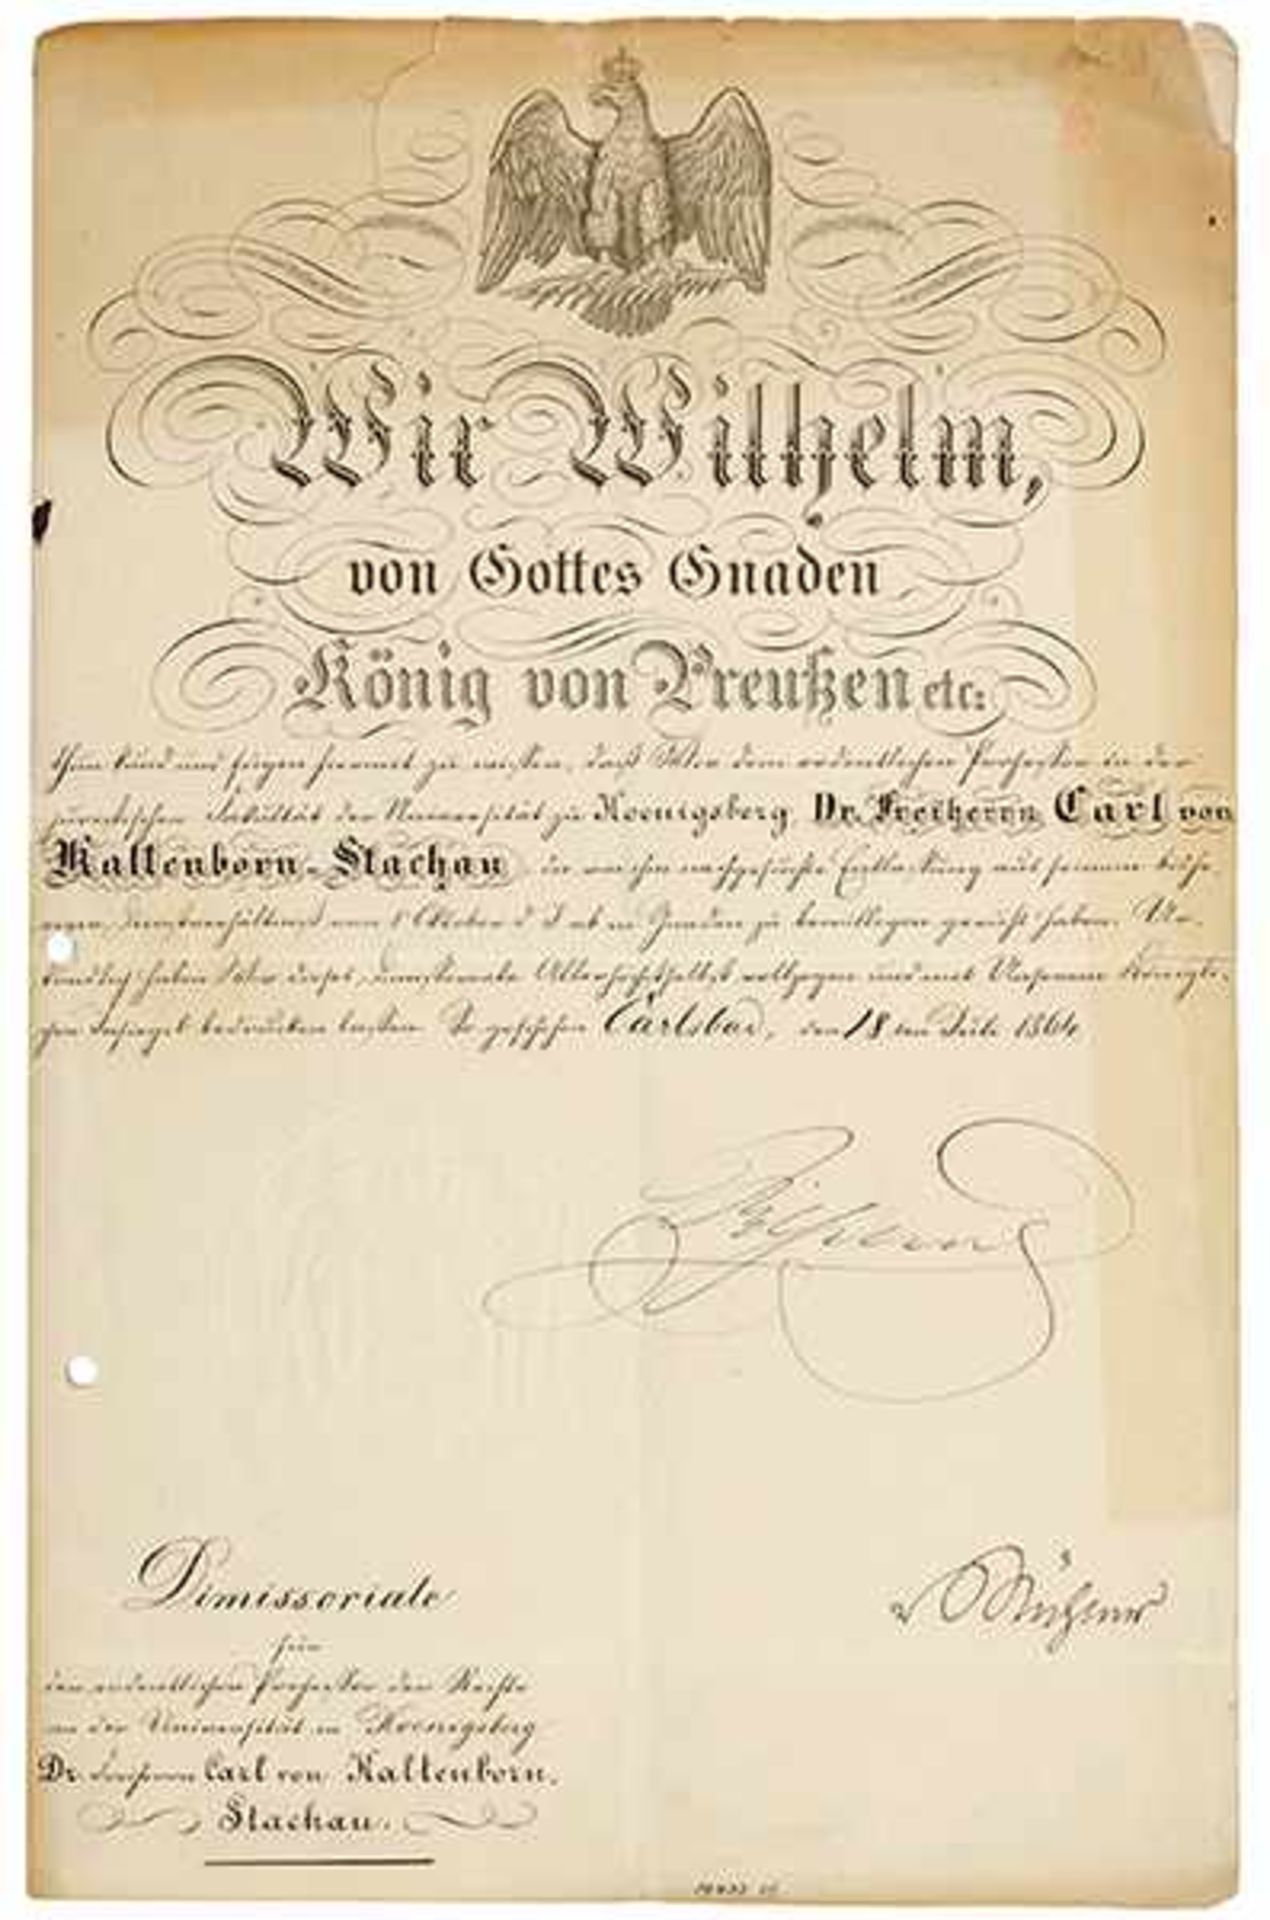 Wir Wilhelm,
von Gottes Gnaden
König von Preußen etc:
thun kund und fügen hiermit zu wissen, daß Wir dem ordentlichen Professor in der
juristischen Fakultät der Universität zu Koenigsberg Dr. Freiherrn Carl von
Kaltenborn-Stachau die von ihm nachgesuchte Entlassung aus seinem bishe-
rigen Dienstverhältniß vom 1 Oktober d J ab in Gnaden zu bewilligen geruht haben. Ur-
kundlich haben Wir dieses Dimissoriale Allerhöchstselbst vollzogen und mit Unserem Königli-
chen Insiegel bedrucken lassen. So geschehen Carlsbad, den 18 ten Juli 1864
Wilhelm
v Mühler
Dimissoriale
für
den ordentlichen Professor der Rechte
an der Universität in Koenigsberg
Dr. Freiherrn Carl von Kaltenborn-
Stachau.